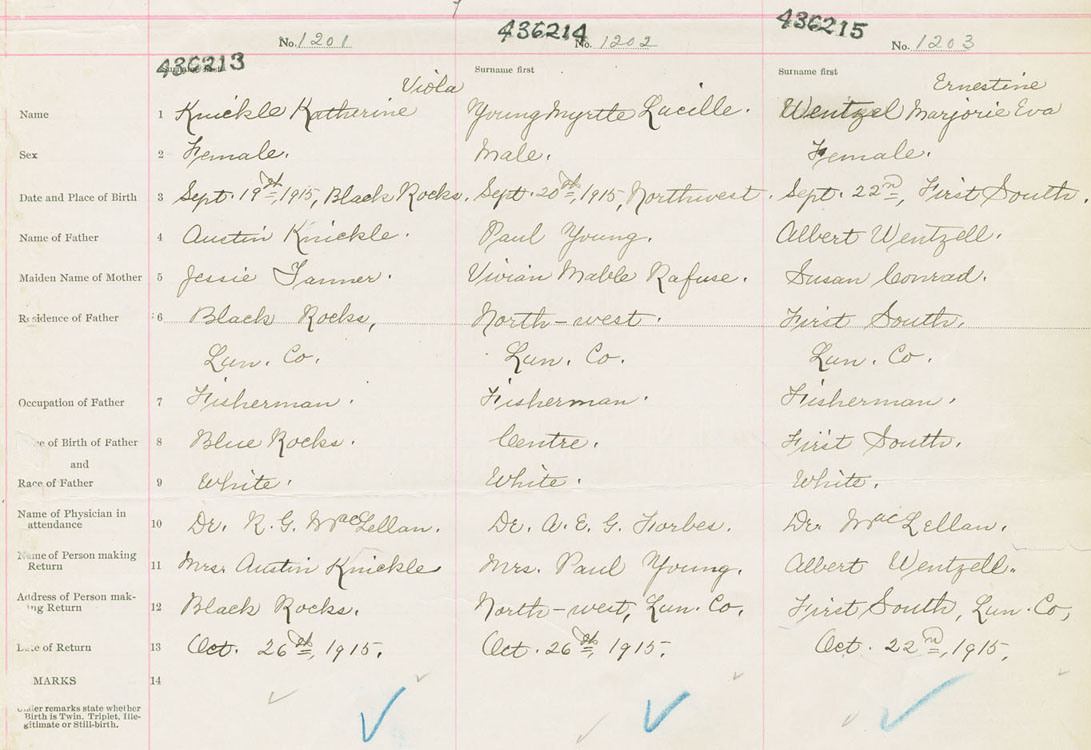 436213 436214 436215
No. 1201 No. 1202 No. 1203
Surname first Surname first Surname first
Viola Ernestine
Name 1 Knickle Katherine Young Myrtle Lucille. Wentzel Marjorie Eva
Sex 2 Female. Male. Female.
Date and Place of Birth 3 Sept. 19th, 1915, Black Rocks. Sept. 20th, 1915, Northwest. Sept. 22nd, First South.
Name of Father 4 Austin Knickle. Paul Young. Albert Wentzell.
Maiden Name of Mother 5 Jessie Tanner. Vivian Mable Rafuse. Susan Conrad.
Residence of Father 6 Black Rocks, North-west. First South.
Lun. Co. Lun. Co. Lun. Co.
Occupation of Father 7 Fisherman. Fisherman. Fisherman.
of Birth of Father 8 Blue Rocks. Centre. First South.
and
Race of Father 9 White. White. White.
Name of Physician in
attendance 10 Dr. R. G. MacLellan. Dr. A. E. G. Forbes. Dr. MacLellan.
Name of Person making
Return 11 Mrs. Austin Knickle Mrs. Paul Young. Albert Wentzell.
Address of Person mak-
ing Return 12 Black Rocks. North-west, Lun. Co. First South, Lun. Co,
Date of Return 13 Oct. 26th, 1915. Oct. 26th, 1915. Oct. 22nd, 1915.
MARKS 14
Under remarks state whether
Birth is Twin, Triplet, Ille-
gitimate or Still-birth.